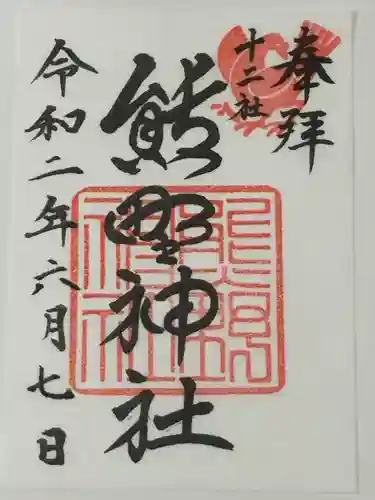 奉拝
十二社
熊野神社
令和二年六月七日